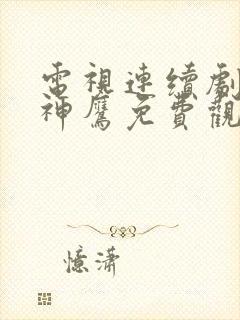 電視連續劇
神鷹免費觀
憶瀟